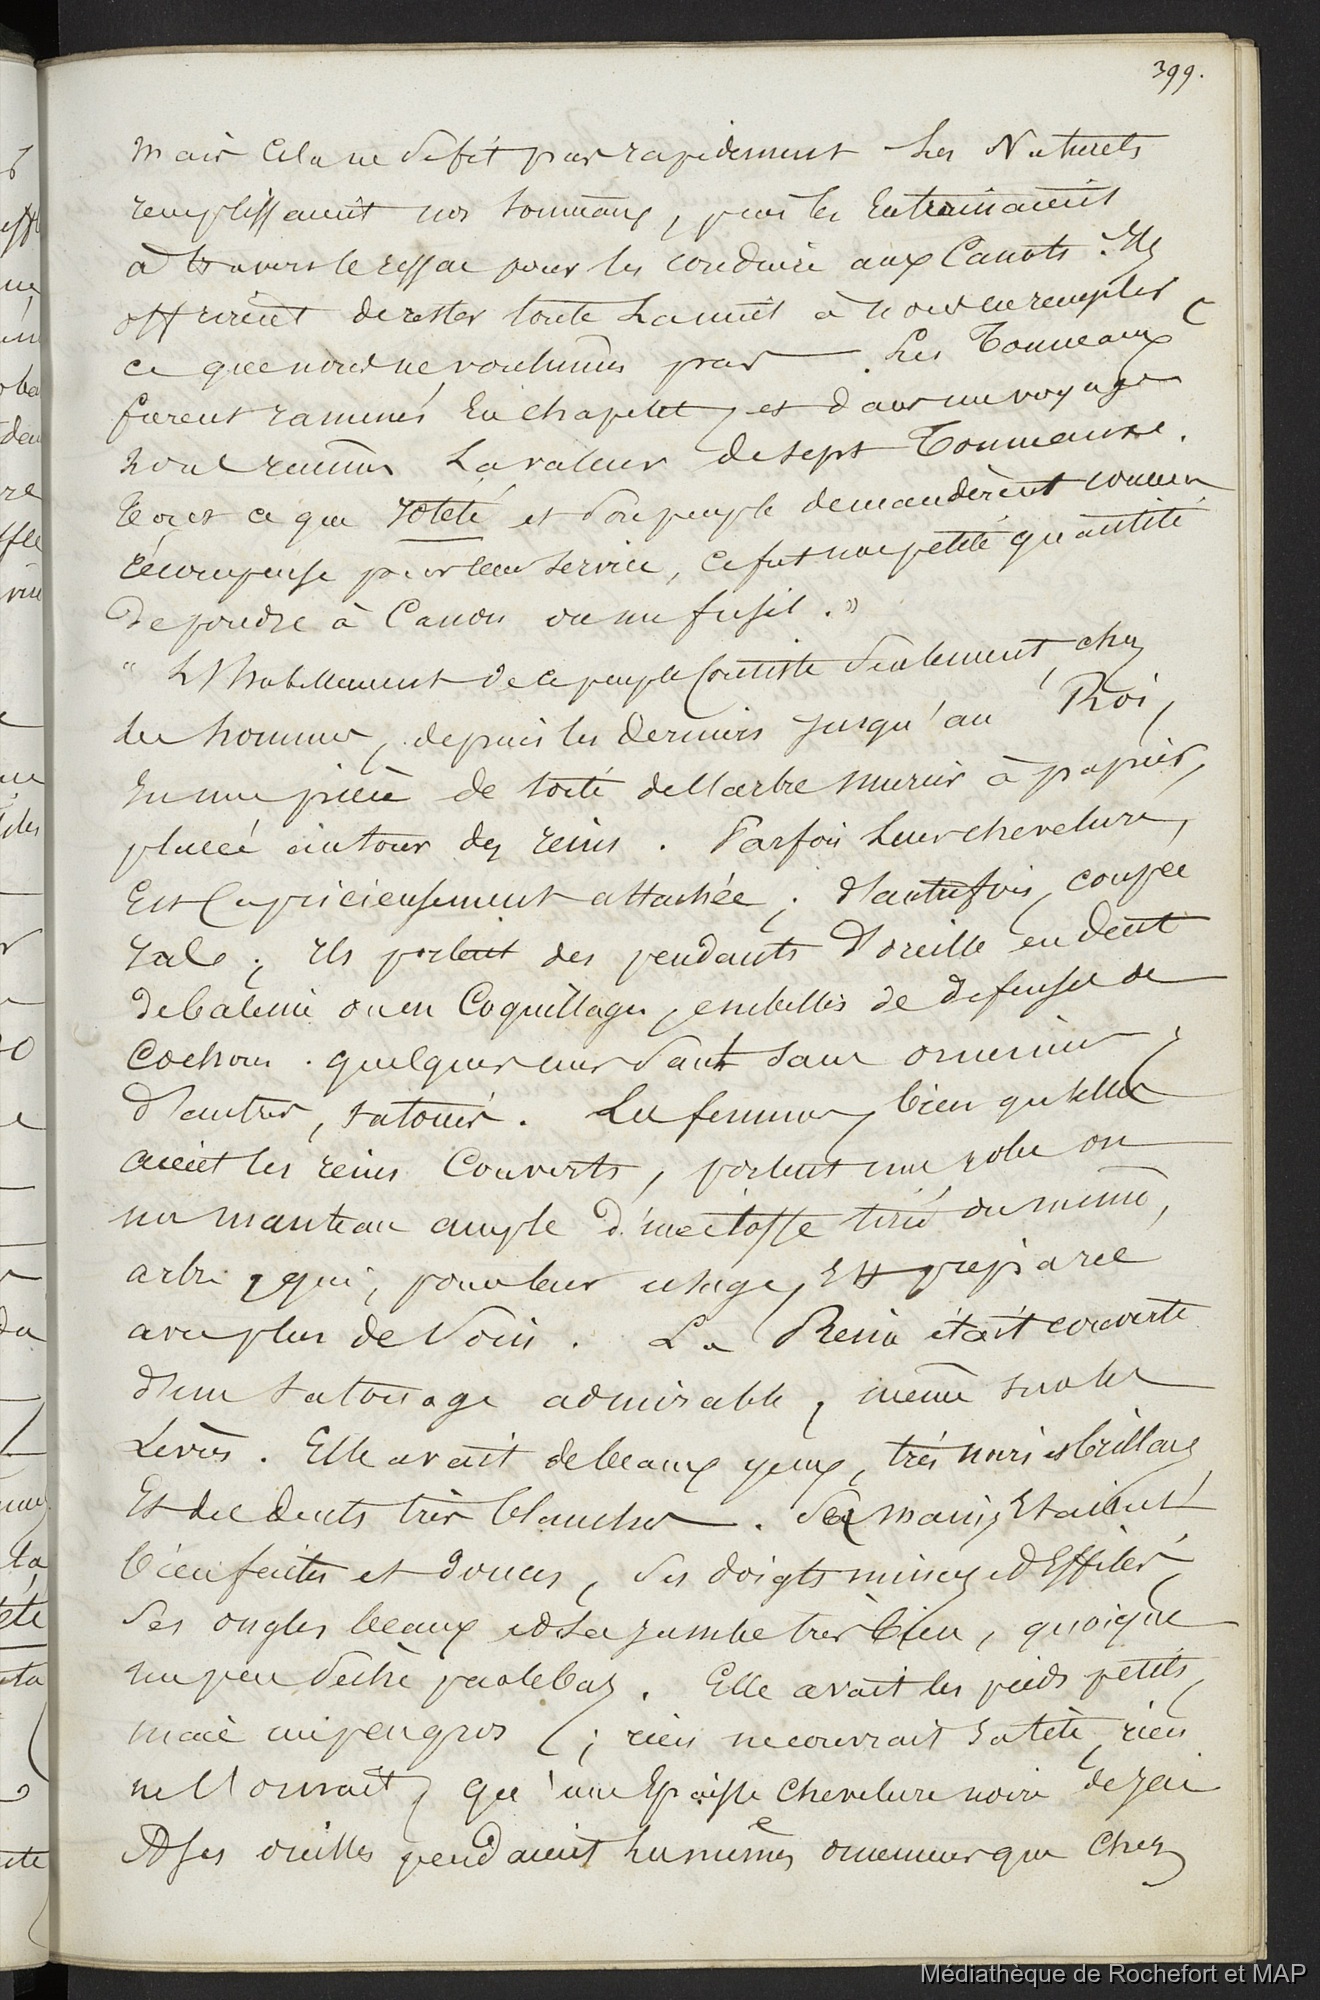 399.
mais cela ne se fit pas rapidement. Les Naturels
remplissaient nos tonneaux, puis les entrainaient
à travers le ressac pour les conduire aux Canots. Ils
offrirent de rester toute la nuit à nous en remplir
ce que nous ne voulumes pas. Les Tonneaux
furent ramenés en chapelet, et dans un voyage
nous eumes la valeur de sept Tonneaux.
Tout ce que Yoteté et son peuple demandèrent comme
récompense pour leur service, ce fut une petite quantité
de poudre à Canon ou un fusil. »
" L'habillement de ce peuple consiste seulement, chez
les hommes, depuis les derniers jusqu'au Roi,
en une pièce de toile de l'arbre murier à papier,
placée autour des reins. Parfois leur chevelure,
est capricieusement attachée; d'autrefois, coupée
rale; ils portent des pendants d'oreille en dent
de baleine ou en Coquillages, embellis de defenses de
cochons. quelques uns sont sans ornemens,
d'autres, tatoués. Les femmes, bien qu'elles
aient les reins Couverts, portent une robe ou
un manteau ample d'une étoffe tirée du même,
arbre, qui, pour leur usage, est préparée
avec plus de soin. La Reine était couverte
d'un tatouage admirable, même sur les
Levres. Elle avait de beaux yeux, très noirs et brillans
et des dents très blanches. Ses mains, etaient
bien faites et douces, ses doigts minces et effilés,
ses ongles beaux et sa jambe très bien, quoique
un peu sèche par le bas. Elle avait les pieds petits,
mais un peu gros; rien ne couvrait sa tête, rien
ne l'ornait, qu'une épaisse chevelure noire de jai
et à ses oreilles pendaient les mêmes ornemens que chez
Médiathèque de Rochefort et MAP